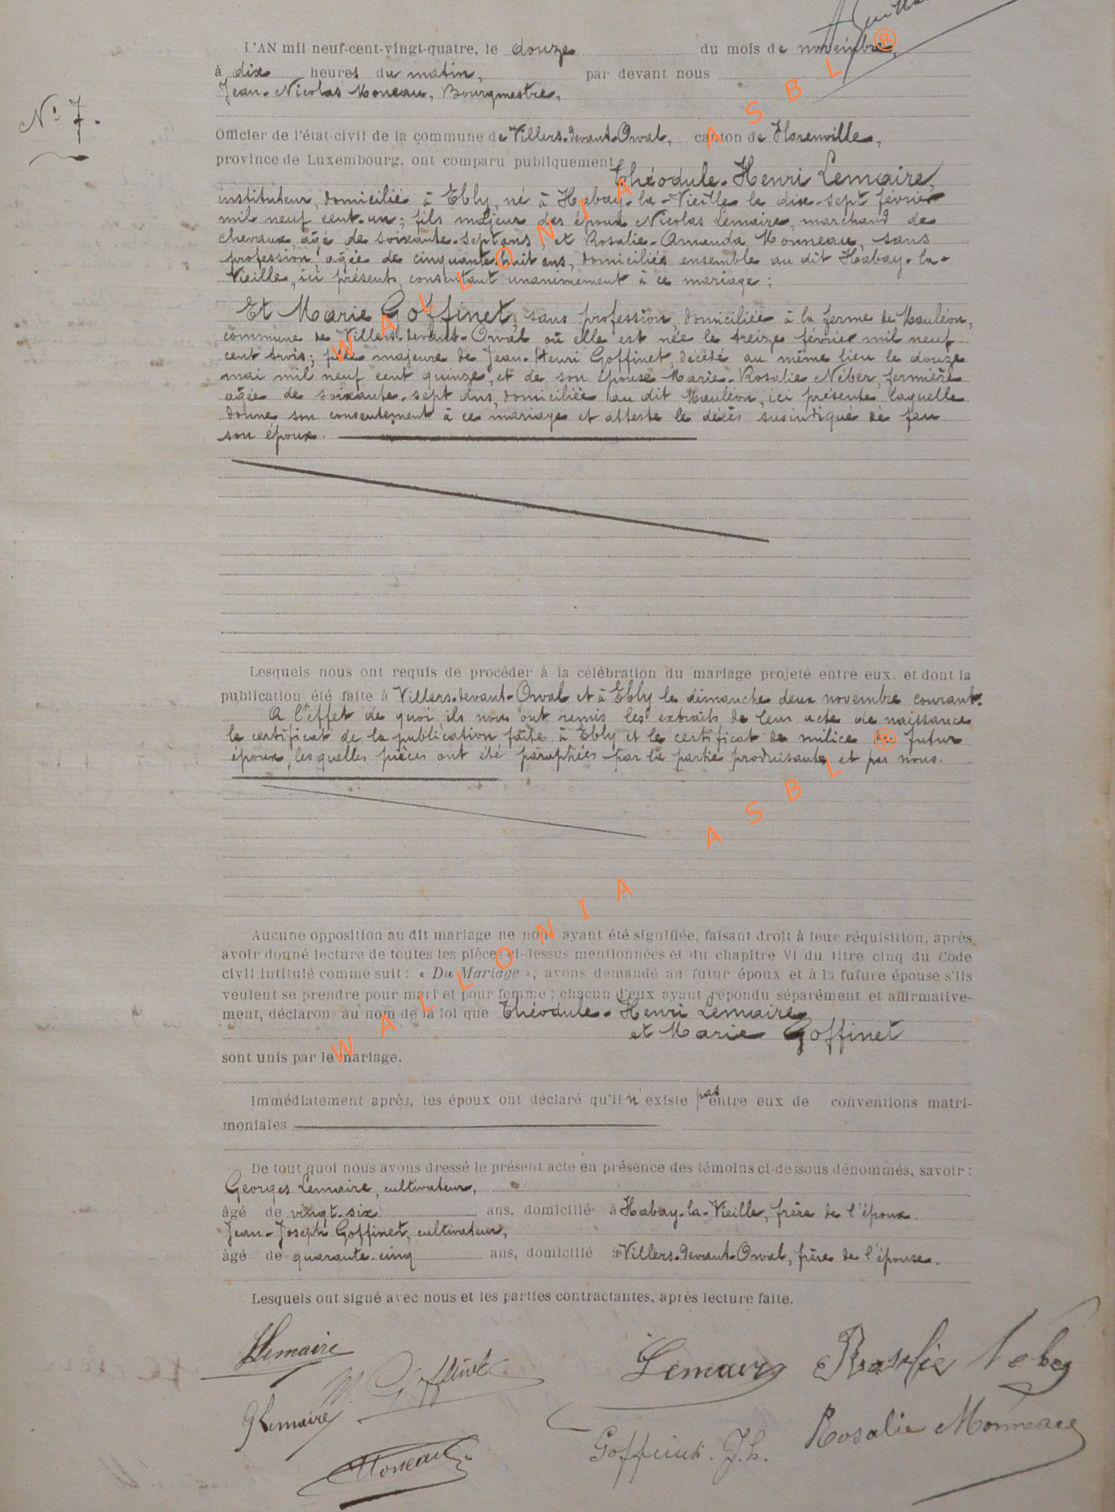 L'AN mil neuf-cent-vingt-quatre, le douze du mois de novembre,
à dix heures du matin, par devant nous
Jean-Nicolas Moneau, Bourgmestre,
N° 7.
Officier de l'état-civil de la commune de Villers-devant-Orval, canton de Florenville,
province de Luxembourg, ont comparu publiquement Théodule-Henri Lemaire,
instituteur, domicilié à Ebly, né à Habay-la-Vieille le dix-sept février
mil neuf cent-un; fils majeur des époux Nicolas Lemaire, marchand de
chevaux, âgé de soixante-sept ans, et Rosalie-Amanda Monneau, sans
profession âgée de cinquante-huit ans, domiciliés ensemble au dit Habay-la-
Vieille, ici présents, consentant unanimement à ce mariage;
Et Marie Goffinet, sans profession, domiciliée à la ferme de Mauléon,
commune de Villers-devant-Orval où elle est née le treize février mil neuf
cent trois; fille majeure de Jean-Henri Goffinet, décédé au même lieu le douze
mai mil neuf cent quinze, et de son épouse Marie-Rosalie Néber, fermière
âgée de soixante-sept ans, domiciliée au dit Mauléon, ici présente laquelle
donne son consentement à ce mariage et atteste le décès susindiqué de feu
son époux.
Lesquels nous ont requis de procéder à la célébration du mariage projeté entre eux, et dont la
publication été faite à Villers-devant-Orval et à Ebly le dimanche deux novembre courant.
A l'effet de quoi ils nous ont remis les extraits de leur acte de naissance
le certificat de la publication faite à Ebly et le certificat de milice du futur
époux, lesquelles pièces ont été paraphées par la partie produisante et par nous.
Aucune opposition au dit mariage ne nous ayant été signifiée, faisant droit à leur réquisition, après
avoir donné lecture de toutes les pièces ci-dessus mentionnées et du chapitre VI du titre cinq du Code
civil intitulé comme suit : « Du Mariage », avons demandé au futur époux et à la future épouse s'ils
veulent se prendre pour mari et pour femme ; chacun d'eux ayant répondu séparément et affirmative-
ment, déclarons au nom de la loi que Théodule-Henri Lemaire
et Marie Goffinet
sont unis par le mariage.
Immédiatement après, les époux ont déclaré qu'il n'existe pas entre eux de conventions matri-
moniales
De tout quoi nous avons dressé le présent acte en présence des témoins ci-dessous dénommés, savoir :
Georges Lemaire, cultivateur,
âgé de vingt-six ans, domicilié à Habay-la-Vieille, frère de l'époux.
Jean-Joseph Goffinet, cultivateur,
âgé de quarante-cinq ans, domicilié à Villers-devant-Orval, frère de l'épouse.
Lesquels ont signé avec nous et les parties contractantes, après lecture faite.
Lemaire
M. Goffinet
Lemaire
Rosalie Neber
G Lemaire
Moneau
Goffinet. J.h.
Rosalie Monneau
WALLONIA ASBL ®
WALLONIA ASBL ®